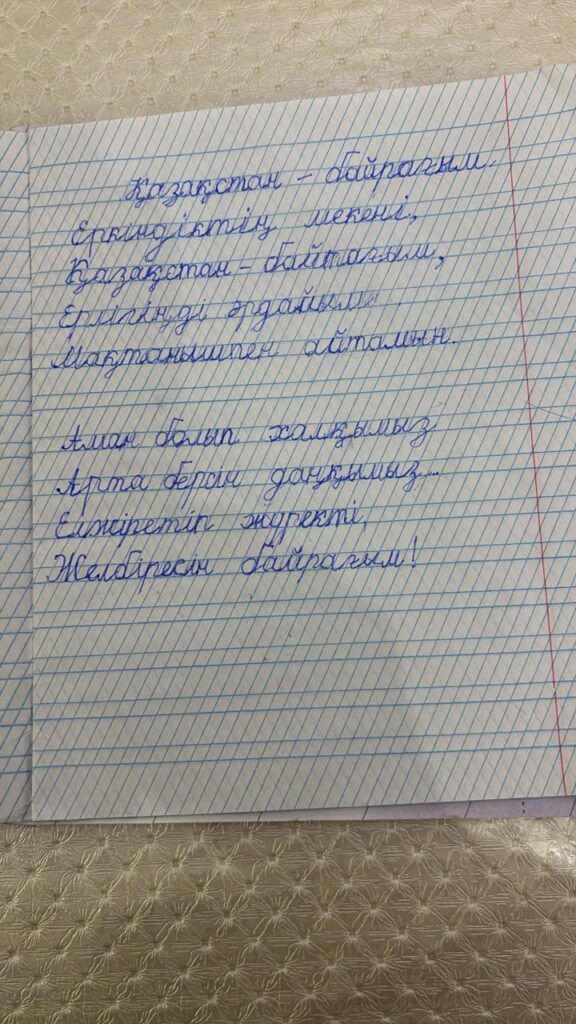 Қазақстан - байрағым.
Еркіндіктің мекені,
Қазақстан - байтағым,
Ерлігіңді әрдайым
Мақтанышпен айтамын.
Аман болып халқымыз
Арта берсін даңқымыз...
Елжіретіп жүректі,
Желбіресін байрағым!